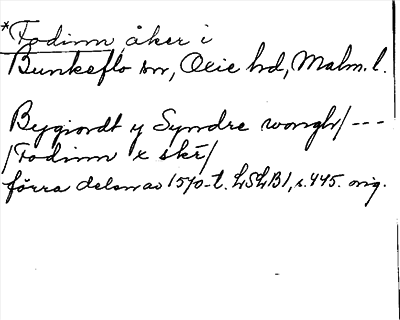 *Fodinn, åker i
Bunkeflo sn, Oxie hd, Malm. l.
Bygiordt y Syndre wongh/ ---
/Fodinn x skr/
förra delen av 1570-t. LSLB1, s. 445. orig.